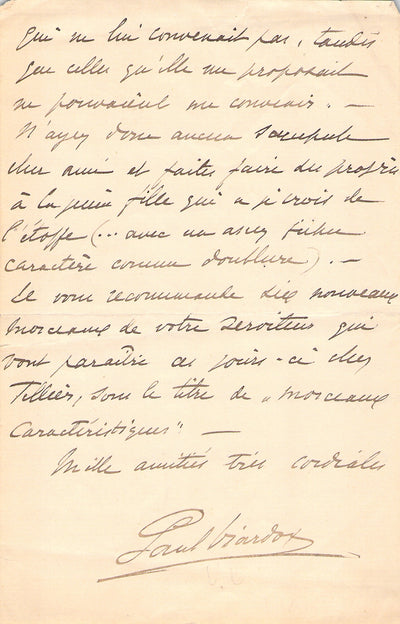 qui ne lui convenait pas, tandis
que celles qu'elle me proposait
ne pouvaient me convenir. —
N'ayez donc aucun scrupule
cher ami et faites faire des progrès
à la jeune fille qui a je crois de
l'étoffe (... avec un assez fichu
caractère comme doublure). —
Je vous recommande six nouveaux
morceaux de votre serviteur qui
vont paraître ces jours-ci chez
Tellier, sous le titre de "Morceaux
Caractéristiques" —
Mille amitiés très cordiales
Paul Viardot